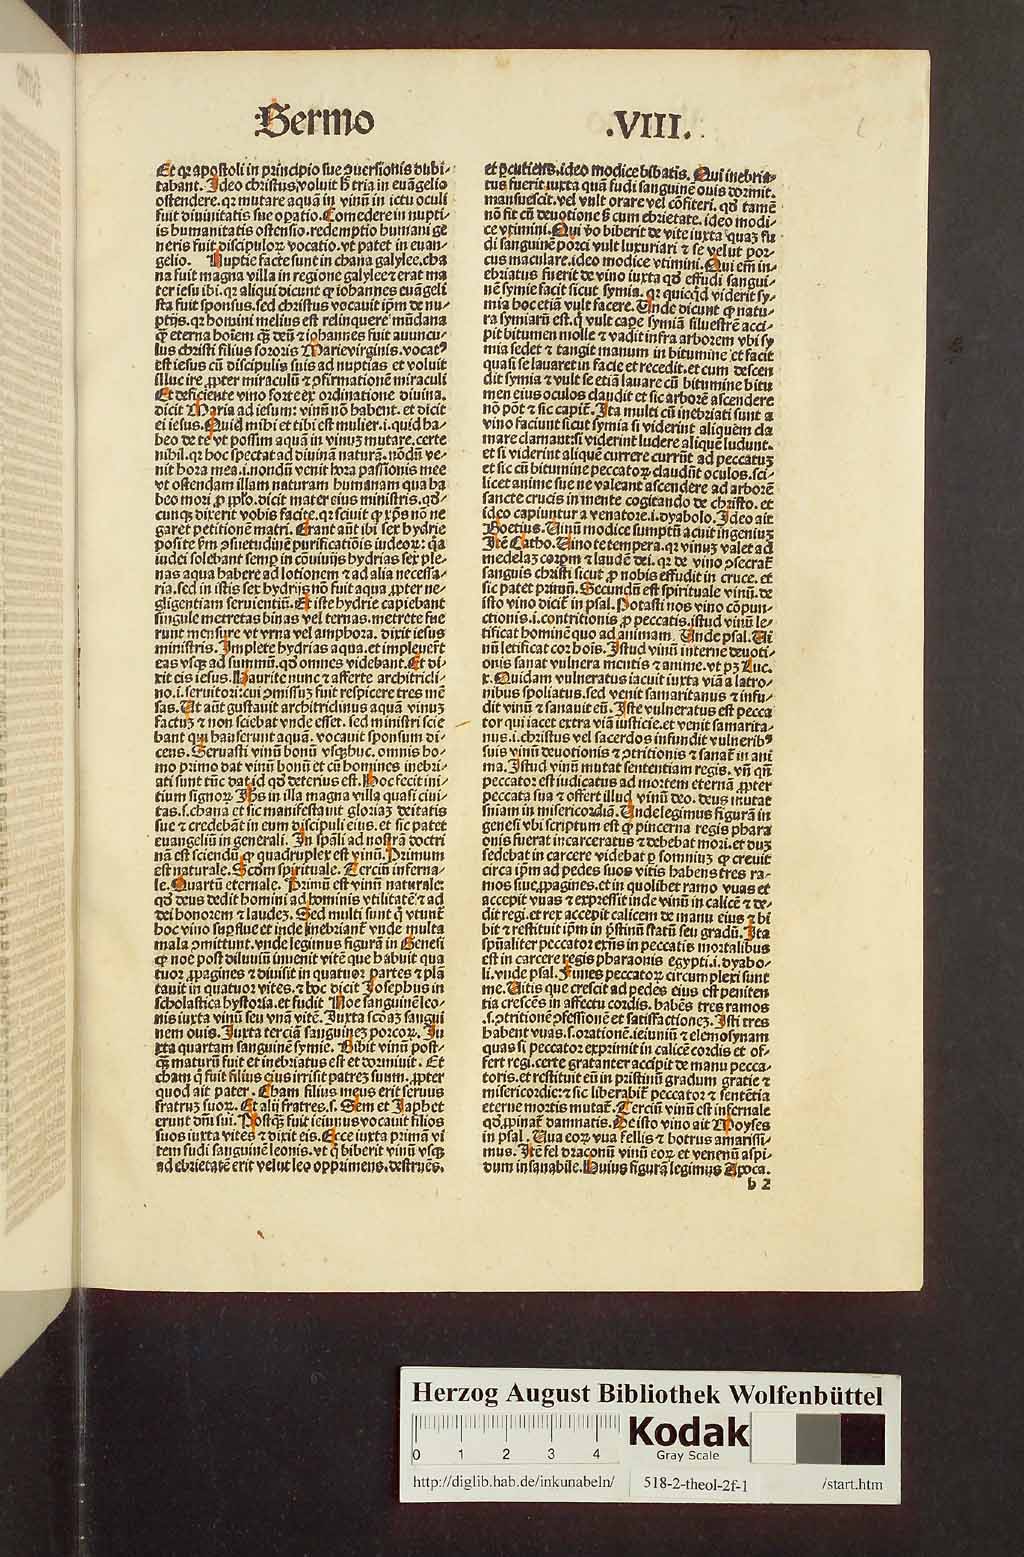 Sermo .VIII.
Et qꝛ apostoli in principio sue ꝯuersionis dubi
tabant. Ideo christus voluit hͦ tria in euāgelio
ostendere. qꝛ mutare aquā in vinū in ictu oculi
fuit diuinitatis sue opatio. Comedere in nupti⸗
is humanitatis ostensio. redemptio humani ge
neris fuit discipuloꝝ vocatio. vt patet in euan⸗
gelio. Nuptie facte sunt in chana galylee. cha
na fuit magna villa in regione galylee ⁊ erat ma
ter iesu ibi. qꝛ aliqui dicunt ꝙ iohannes euāgeli
sta fuit sponsus. sed christus vocauit ip̄m de nu⸗
ptijs. qꝛ homini melius est relinquere mūdana
ꝙ̄ eterna hoīem ꝙ̄ deū ⁊ iohannes fuit auuncu⸗
lus christi filius sororis Marie virginis. vocatꝰ
est iesus cū discipulis suis ad nuptias et voluit
illuc ire ꝓpter miraculū ⁊ ꝯfirmationē miraculi
Et deficiente vino forte ex ordinatione diuina.
dicit Maria ad iesum: vinū nō habent. et dicit
ei iesus. Quid mihi et tibi est mulier. i. quid ha⸗
beo de te vt possim aquā in vinuꝫ mutare. certe
nihil. qꝛ hoc spectat ad diuinā naturā. nōdū ve⸗
nit hora mea. i. nondū venit hora passionis mee
vt ostendam illam naturam humanam qua ha
beo mori ꝓ pplo. dicit mater eius ministris. qd̓⸗
cunqꝫ dixerit vobis facite. qꝛ sciuit ꝙ xp̄s nō ne
garet petitionē matri. Erant aūt ibi sex hydrie
posite ẜm ꝯsuetudinē purificatiōis iudeoꝝ: qꝛ
iudei solebant semp in cōuiuijs hydrias sex ple⸗
nas aqua habere ad lotionem ⁊ ad alia necessa⸗
ria. sed in istis sex hydrijs nō fuit aqua ꝓpter ne⸗
gligentiam seruientiū. Et iste hydrie capiebant
singule metretas binas vel ternas. metrete fue
runt mensure vt vrna vel amphora. dixit iesus
ministris. Implete hydrias aqua. et impleuer̄t
eas vsqꝫ ad summū. qd̓ omnes videbant. Et di⸗
xit eis iesus. Haurite nunc ⁊ afferte architricli⸗
no. i. seruitori: cui ꝯmissuꝫ fuit respicere tres mē
sas. Ut aūt gustauit architriclinus aquā vinuꝫ
factuꝫ ⁊ non sciebat vnde esset. sed ministri scie
bant qui hauserunt aquā. vocauit sponsum di⸗
cens. Seruasti vinū bonū vsqꝫ huc. omnis ho⸗
mo primo dat vinū bonū et cū homines inebri⸗
ati sunt tūc dat id qd̓ deterius est. Hoc fecit ini⸗
tium signoꝝ Ihs in illa magna villa quasi ciui⸗
tas. s. chana et sic manifestauit gloriaꝫ deitatis
sue ⁊ credebāt in eum discipuli eius. et sic patet
euangeliū in generali. In sp̄ali ad nostrā doctri
nā est sciendū ꝙ quadruplex est vinū. Primum
est naturale. Scd̓m spirituale. Terciū inferna⸗
le. Quartū eternale. Primū est vinū naturale:
qd̓ deus dedit homini ad hominis vtilitatē ⁊ ad
dei honorem ⁊ laudeꝫ. Sed multi sunt q̇ vtunt̄
hoc vino supflue et inde inebriant̄ vnde multa
mala ꝯmittunt. vnde legimus figurā in Genesi
ꝙ noe post diluuiū inuenit vitē que habuit qua
tuor ꝓpagines ⁊ diuisit in quatuor partes ⁊ plā
tauit in quatuor vites. ⁊ hoc dicit Iosephus in
scholastica hystoria. et fudit Noe sanguinē leo⸗
nis iuxta vinū seu vnā vitē. Iuxta scd̓aꝫ sangui
nem ouis. Iuxta terciā sanguineꝫ porcoꝝ. Iu
xta quartam sanguinē symie. Bibit vinū post⸗
ꝙ̄ maturū fuit et inebriatus est et dormiuit. Et
cham q̇ fuit filius eius irrisit patreꝫ suum. ꝓpter
quod ait pater. Cham filius meus erit seruus
fratruꝫ suoꝝ. Et alij fratres. s. Sem et Iaphet
erunt dn̄i sui. Postqꝫ fuit ieiunus vocauit filios
suos iuxta vites ⁊ dixit eis. Ecce iuxta primā vi
tem fudi sanguinē leonis. vt q̇ biberit vinū vsqꝫ
ad ebrietatē erit velut leo opprimens. destruēs.
et ꝑcutiens. ideo modice bibatis. Qui inebria⸗
tus fuerit iuxta quā fudi sanguinē ouis dormit.
mansuescit. vel vult orare vel cōfiteri. qd̓ tamē
nō fit cū deuotione ꝫ cum ebrietate. ideo modi⸗
ce vtimini. Qui ꝟo biberit de vite iuxta quaꝫ fu
di sanguinē porci vult luxuriari ⁊ se velut por⸗
cus maculare. ideo modice vtimini. Qui em̄ in⸗
ebriatus fuerit de vino iuxta qd̓ effudi sangui⸗
nē symie facit sicut symia. qꝛ quicqͥd viderit sy⸗
mia hoc etiā vult facere. Unde dicunt ꝙ natu⸗
ra symiaꝝ est. q̇ vult cape symiā siluestrē acci⸗
pit bitumen molle ⁊ vadit infra arborem vbi sy
mia sedet ⁊ tangit manum in bitumine et facit
quasi se lauaret in facie et recedit. et cum descen
dit symia ⁊ vult se etiā lauare cū bitumine bitu
men eius oculos claudit et sic arborē ascendere
nō pōt ⁊ sic capit̄. Ita multi cū inebriati sunt a
vino faciunt sicut symia si viderint aliquem cla
mare clamant. si viderint ludere aliquē ludunt.
et si viderint aliquē currere currūt ad peccatuꝫ
et sic cū bitumine peccatoꝝ claudūt oculos. sci⸗
licet anime sue ne valeant ascendere ad arborē
sancte crucis in mente cogitando de christo. et
ideo capiuntur a venatore. i. dyabolo. Ideo ait
Boetius. Uinū modice sumptū acuit ingeniuꝫ
Itē Catho. Uino te tempera. qꝛ vinuꝫ valet ad
medelaꝫ corpm ⁊ laudē dei. qꝛ de vino ꝯsecrat̄
sanguis christi sicut ꝓ nobis effudit in cruce. et
sic patet primū. Secundū est spirituale vinū. de
isto vino dicit̄ in psal. Potasti nos vino cōpun⸗
ctionis. i. contritionis ꝓ peccatis. istud vinū le⸗
tificat hominē quo ad animam. Unde psal. Ui
nū letificat cor hoīs. Istud vinū interne deuoti⸗
onis sanat vulnera mentis ⁊ anime. vt pꝫ Luc.
x. Quidam vulneratus iacuit iuxta viā a latro⸗
nibus spoliatus. sed venit samaritanus ⁊ infu⸗
dit vinū ⁊ sanauit eū. Iste vulneratus est pecca
tor qui iacet extra viā iusticie. et venit samarita⸗
nus. i. christus vel sacerdos infundit vulneribꝰ
suis vinū deuotionis ⁊ ꝯtritionis ⁊ sanat̄ in ani
ma. Istud vinū mutat sententiam regis. vn̄ qn̄
peccator est iudicatus ad mortem eternā ꝓpter
peccata sua ⁊ offert illud vinū deo. deus mutat
sniam in misericordiā. Unde legimus figurā in
genesi vbi scriptum est ꝙ pincerna regis phara
onis fuerat incarceratus ⁊ debebat mori. et duꝫ
sedebat in carcere videbat ꝑ somniuꝫ ꝙ creuit
circa ip̄m ad pedes suos vitis habens tres ra⸗
mos siue ꝓpagines. et in quolibet ramo vuas et
accepit vuas ⁊ expressit inde vinū in calicē ⁊ de⸗
dit regi. et rex accepit calicem de manu eius ⁊ bi
bit ⁊ restituit ip̄m in pͥstinū statū seu gradū. Ita
spūaliter peccator exn̄s in peccatis mortalibus
est in carcere regis pharaonis egypti. i. dyabo⸗
li. vnde psal. Funes peccatoꝝ circumplexi sunt
me. Uitis que crescit ad pedes eius est peniten
tia crescēs in affectu cordis. habēs tres ramos
.s. ꝯtritionē ꝯfessionē et satisfactioneꝫ. Isti tres
habent vuas. s. orationē. ieiuniū ⁊ elemosynam
quas si peccator exprimit in calicē cordis et of⸗
fert regi. certe gratanter accipit de manu pecca⸗
toris. et restituit eū in pristinū gradum gratie ⁊
misericordie: ⁊ sic liberabit̄ peccator ⁊ sentētia
eterne mortis mutat̄. Terciū vinū est infernale
qd̓ ꝓpinat̄ damnatis. De isto vino ait Moyses
in psal. Uua eoꝝ vua fellis ⁊ botrus amarissi⸗
mus. Itē fel draconū vinū eoꝝ et venenū aspi⸗
dum insanabile. Huius figurā legimus Apoca.
b 2
Herzog August Bibliothek Wolfenbüttel
0 1 2 3 4
Kodak
Gray Scale
http://diglib.hab.de/inkunabeln/ 518-2-theol-2f-1 /start.htm